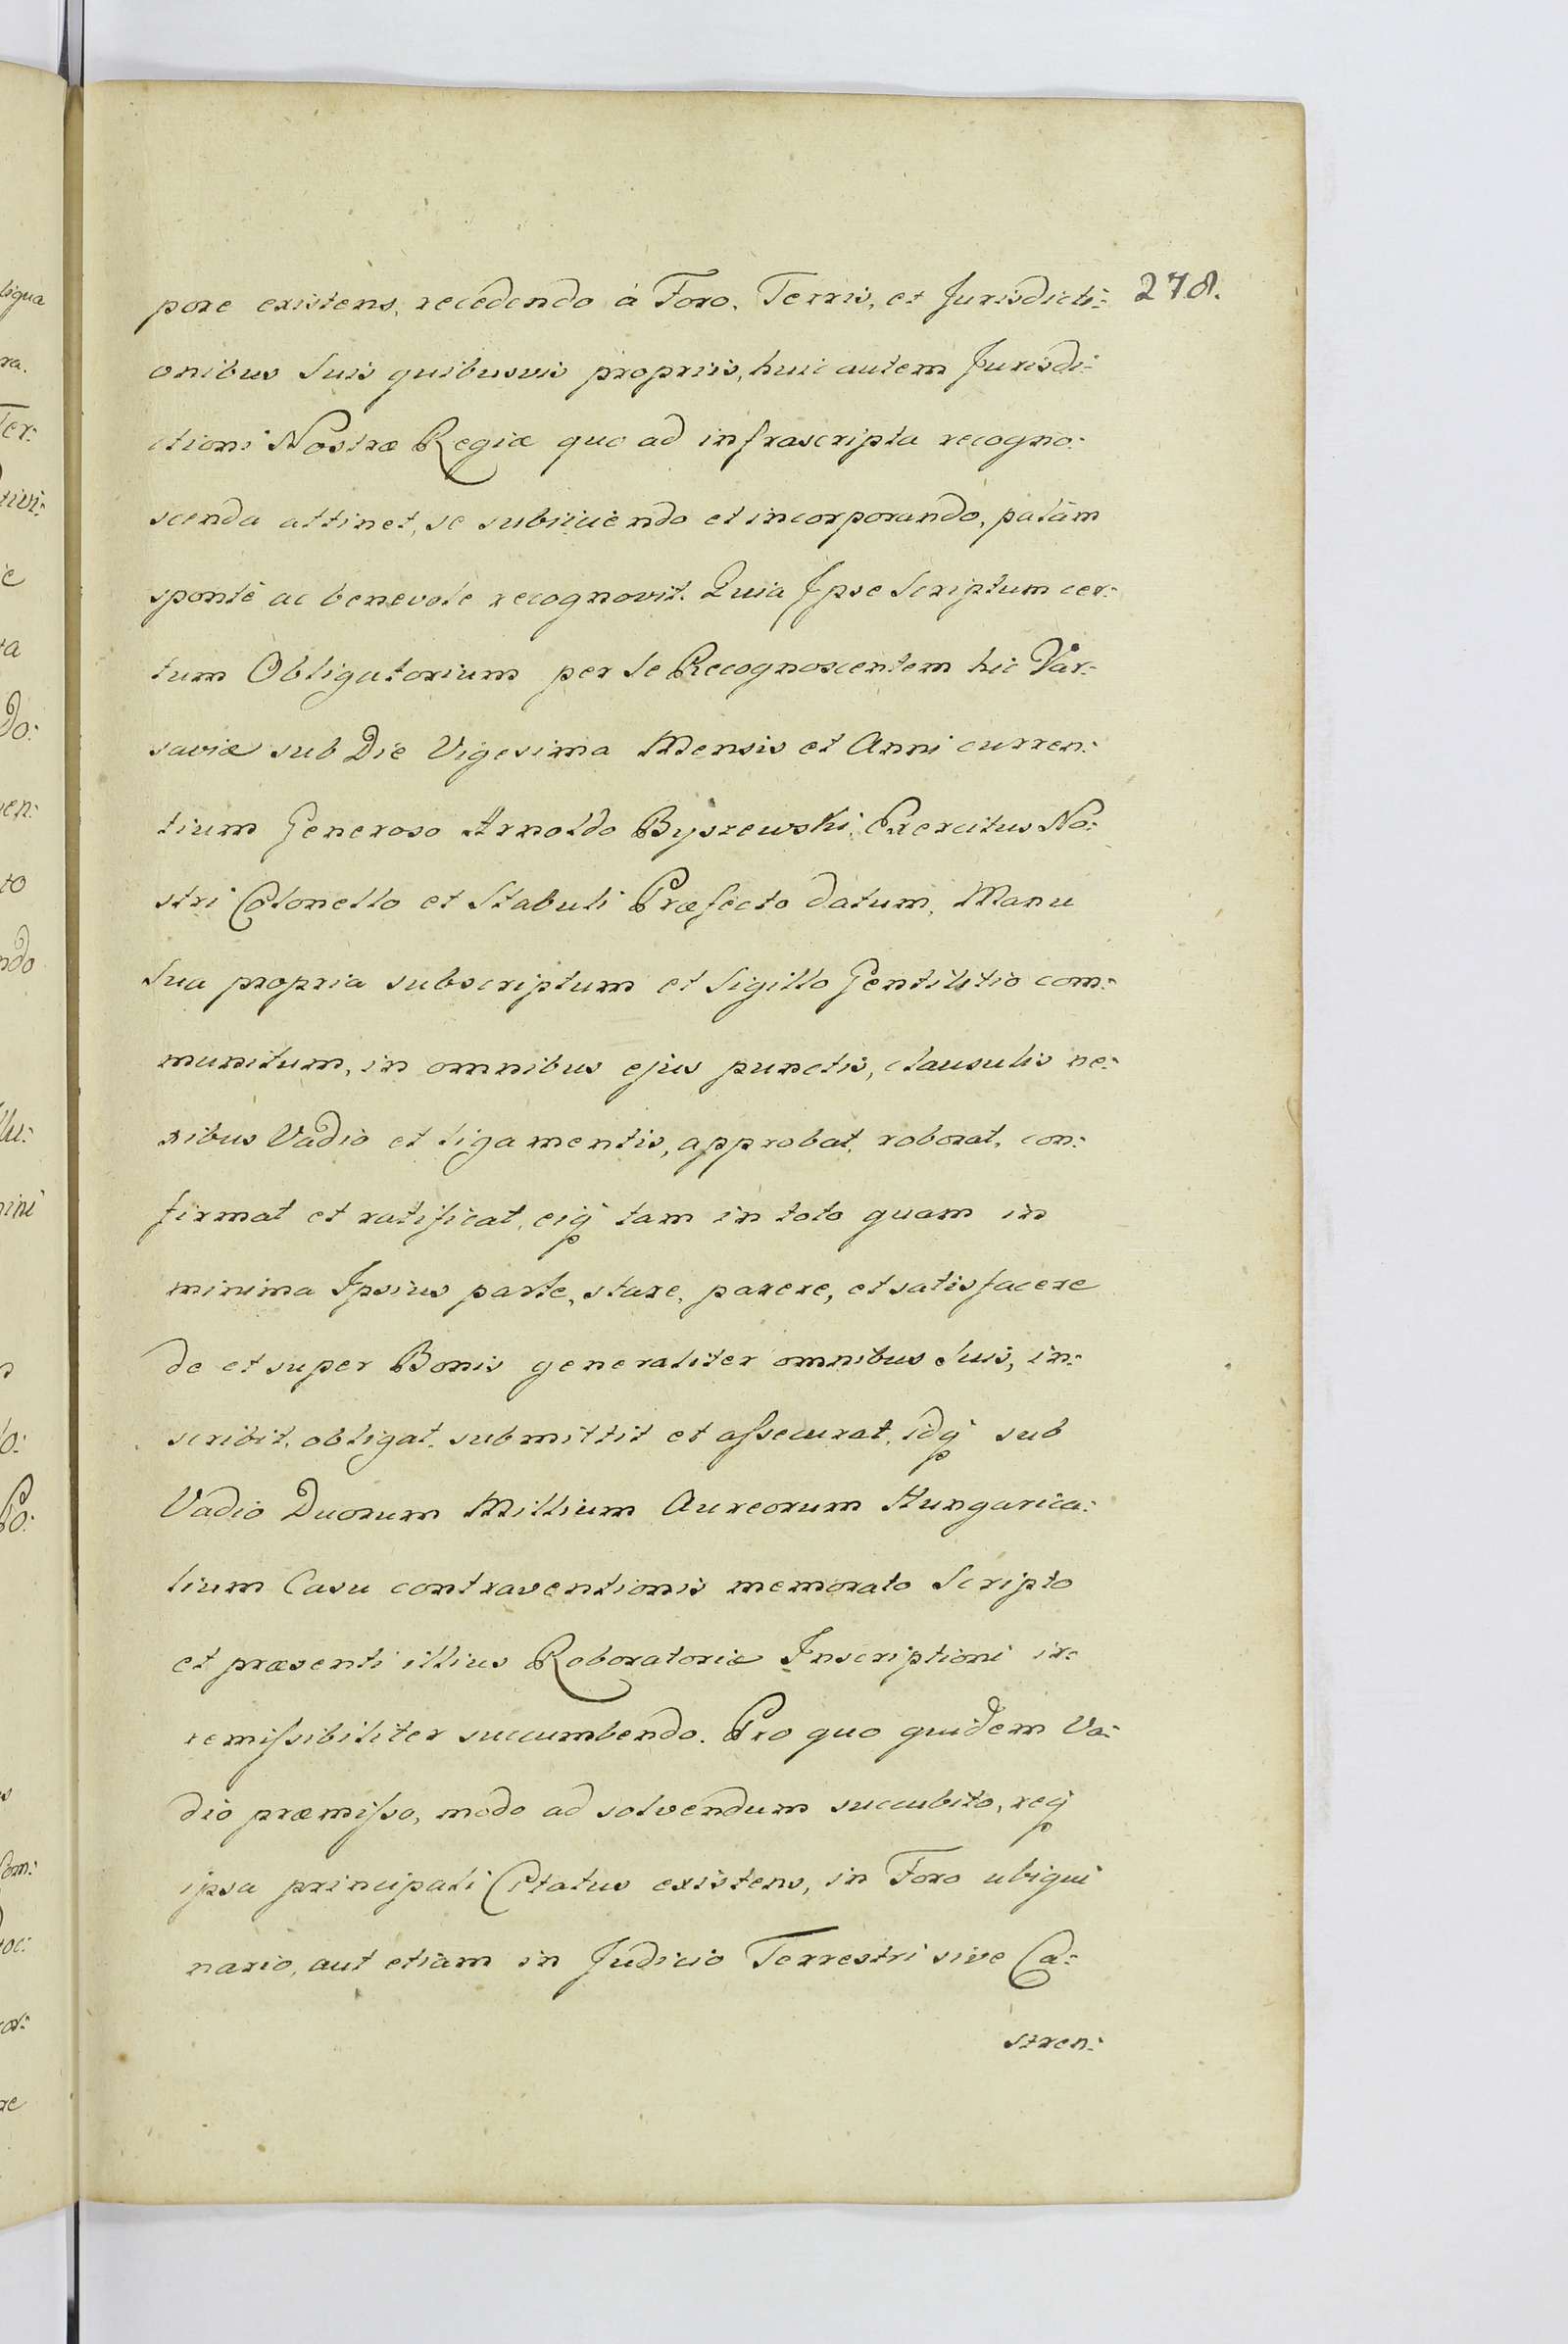 278.
pore existens, recedendo à Foro, Terris, et Jurisdicti:
onibus Suis quibusvis propriis, huic autem Jurisdi:
ctioni Nostræ Regiæ quo ad infrascripta recogno:
scenda attinet, se subiiciendo et incorporando, palàm
spontè ac benevole recognovit. Quia Ipse Scriptum cer:
tum Obligatorium per Se Recognoscentem hic Var:
saviæ sub Die Vigesima Mensis et Anni curren:
tium Generoso Arnoldo Byszewski, Exercitus No:
stri Colonello et Stabuli Præfecto datum, Manu
Sua propria subscriptum et Sigillo Gentilitio com:
munitum, in omnibus ejus punctis, clausulis ne:
xibus Vadio et ligamentis, approbat, roborat, con:
firmat et ratificat, eiq; tam in toto quam in
minima Ipsius parte, stare, parere, et satisfacere
de et super Bonis generaliter omnibus Suis, in:
scribit, obligat, submittit et assecurat, idq; sub
Vadio Duorum Millium Aureorum Hungarica:
lium Casu contraventionis memorato Scripto
et præsenti illius Roboratoriæ Inscriptioni ir:
remissibiliter succumbendo. Pro quo quidem Va:
dio præmisso, modo ad solvendum succubito, req;
ipsa principali Citatus existens, in Foro ubiqui
nario, aut etiam in Judicio Terrestri sive Ca:
stren:
ligua
ra.
Ter:
tivi:
Do:
to
ndo
Po: